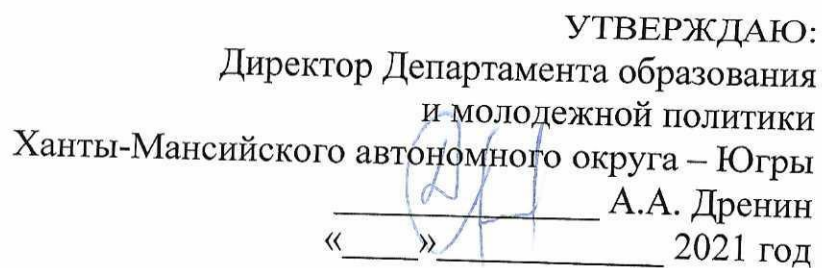 УТВЕРЖДАЮ:
Директор Департамента образования
и молодежной политики
Ханты-Мансийского автономного округа – Югры
______________ А.А. Дренин
«____»____________ 2021 год